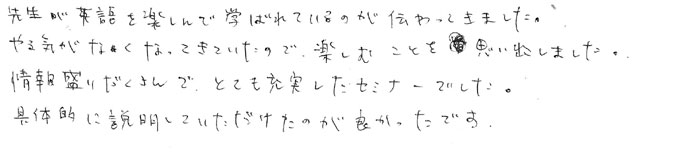 先生が英語を楽しんで学ばれているのが伝わってきました。
やる気がなくなってきていたので、楽しむことを思い出しました。
情報盛りだくさんで、とても充実したセミナーでした。
具体的に説明していただけたのが良かったです。